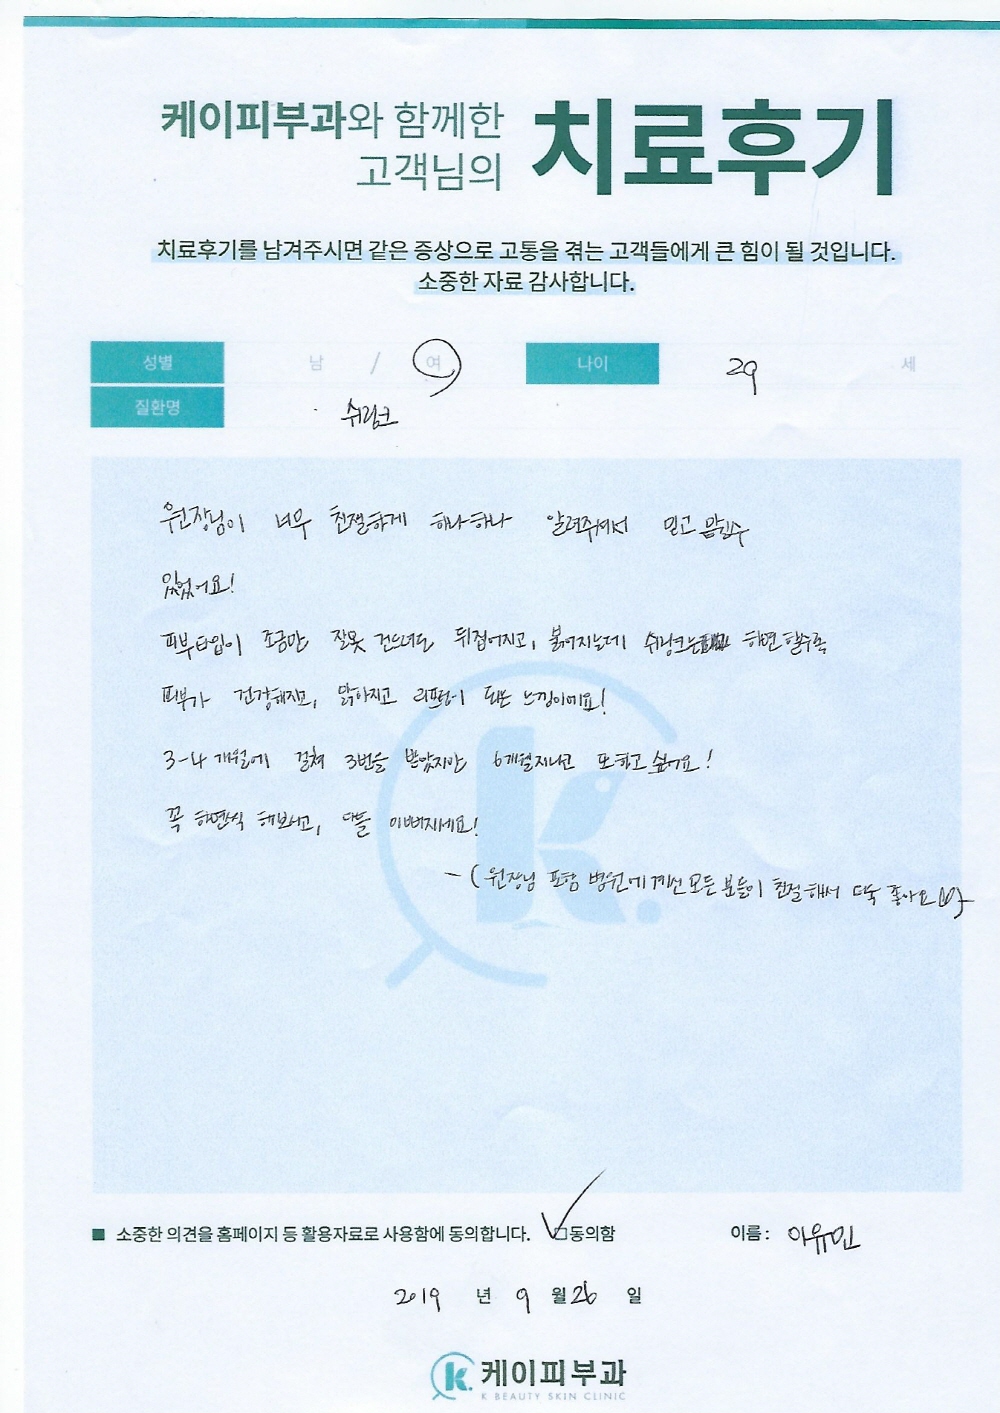 케이피부과와 함께한
고객님의
치료후기
치료후기를 남겨주시면 같은 증상으로 고통을 겪는 고객들에게 큰 힘이 될 것입니다.
소중한 자료 감사합니다.
성별 남 / 여 나이 29 세
질환명 쉬링크
원장님이 너무 친절하게 하나하나 알려주셔서 믿고 맡길수
있었어요!
피부타입이 조금만 잘못 건드려도 뒤집어지고, 붉어지는데 쉬링크는 하면 할수록
피부가 건강해지고, 맑아지고 리프팅이 되는 느낌이에요!
3-4개월에 걸쳐 3번을 받았지만 6개월지나고 또하고 싶어요!
꼭 하면식 해보시고, 다들 이뻐지세요!
- (원장님 포함 병원에 계신 모든 분들이 친절해서 더욱 좋아요
■ 소중한 의견을 홈페이지 등 활용자료로 사용함에 동의합니다. □동의함 이름: 이유민
2019 년 9 월 26 일
k. 케이피부과
K BEAUTY SKIN CLINIC